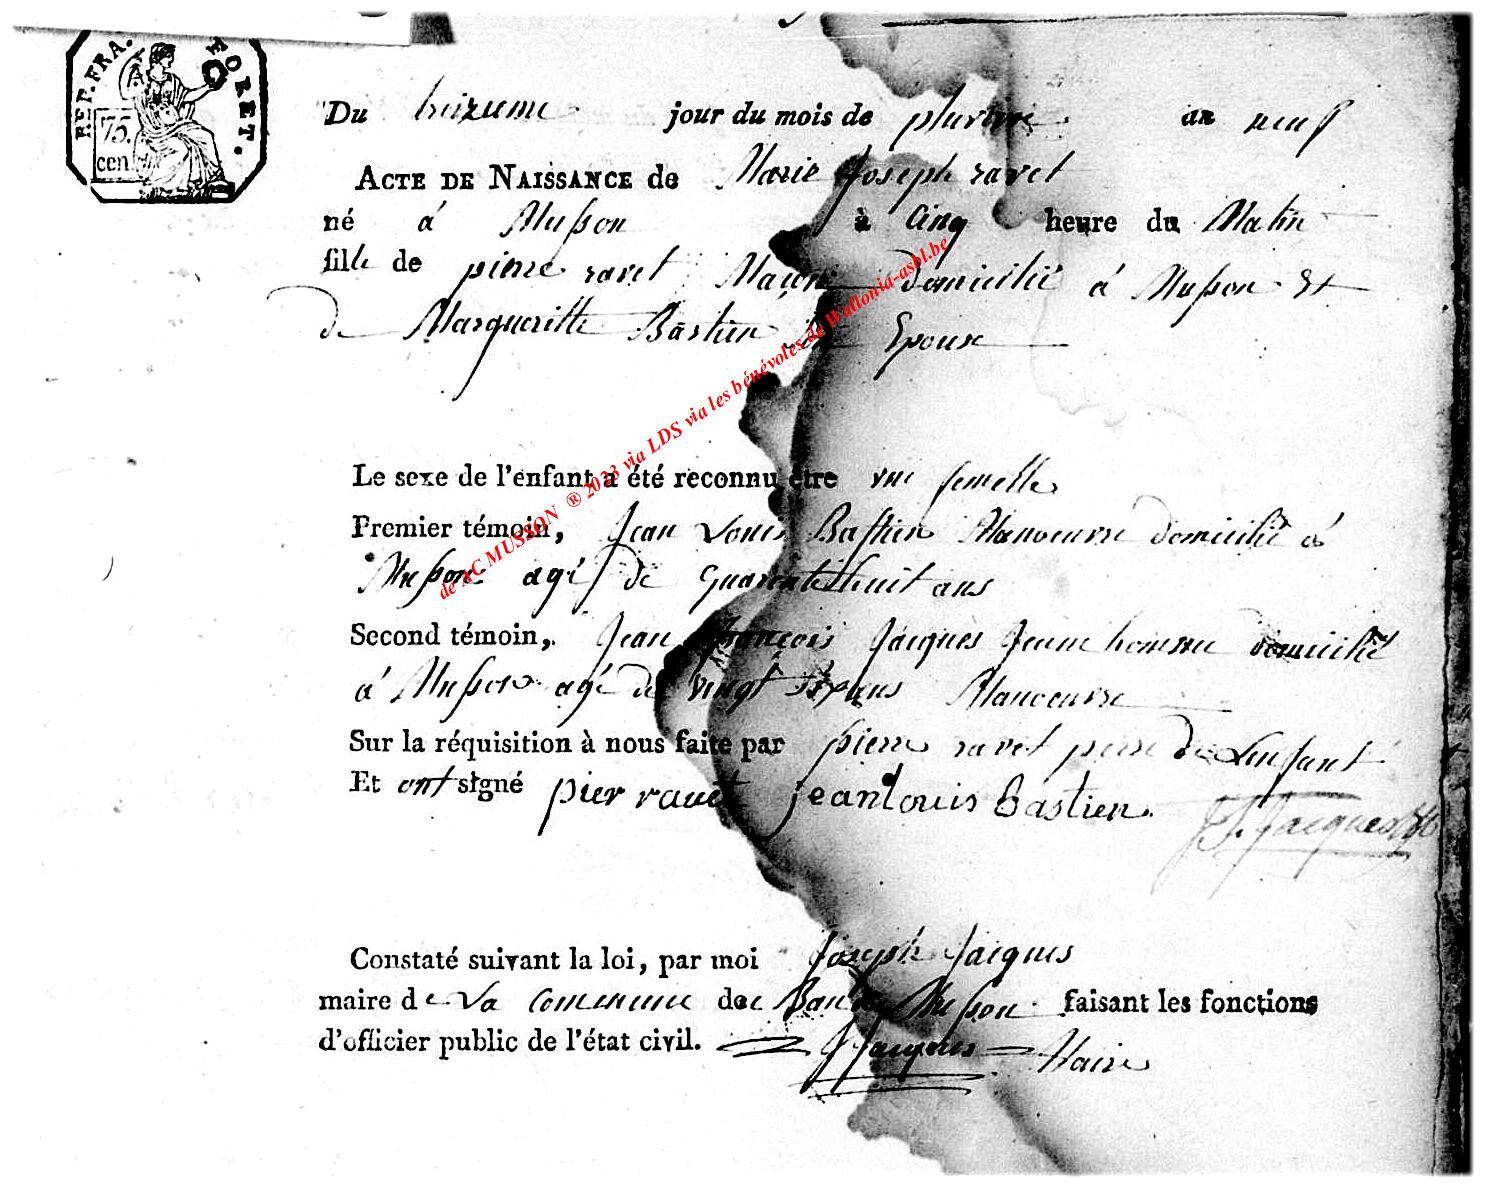 REP. FRA. FORET.
75.
cen.
Du treizieme jour du mois de pluviose an neuf
ACTE DE NAISSANCE de Marie Joseph ravet
né á Musson à Cinq heure du Matin
fille de pierre ravet Maçon domicilié á Musson Et
de Margueritte Bastien Epouse
Le sexe de l'enfant a été reconnu être une femelle
Premier témoin, Jean Louis Bastien Manoeuvre domicilié á
Musson agé de quarente huit ans
Second témoin, Jean François Jacques Jeune homme domicilié
á Musson agé de vingt ans Manoeuvre
Sur la réquisition à nous faite par pierre ravet pere de Lenfant
Et ont signé pier ravet jeanlouis Bastien. J f Jacques
Constaté suivant la loi, par moi Joseph Jacques
maire de La Commune de Musson faisant les fonctions
d'officier public de l'état civil. J Jacques Maire
de AC MUSSON ® 2023 via LDS via les bénévoles de Wallonia-asbl.be